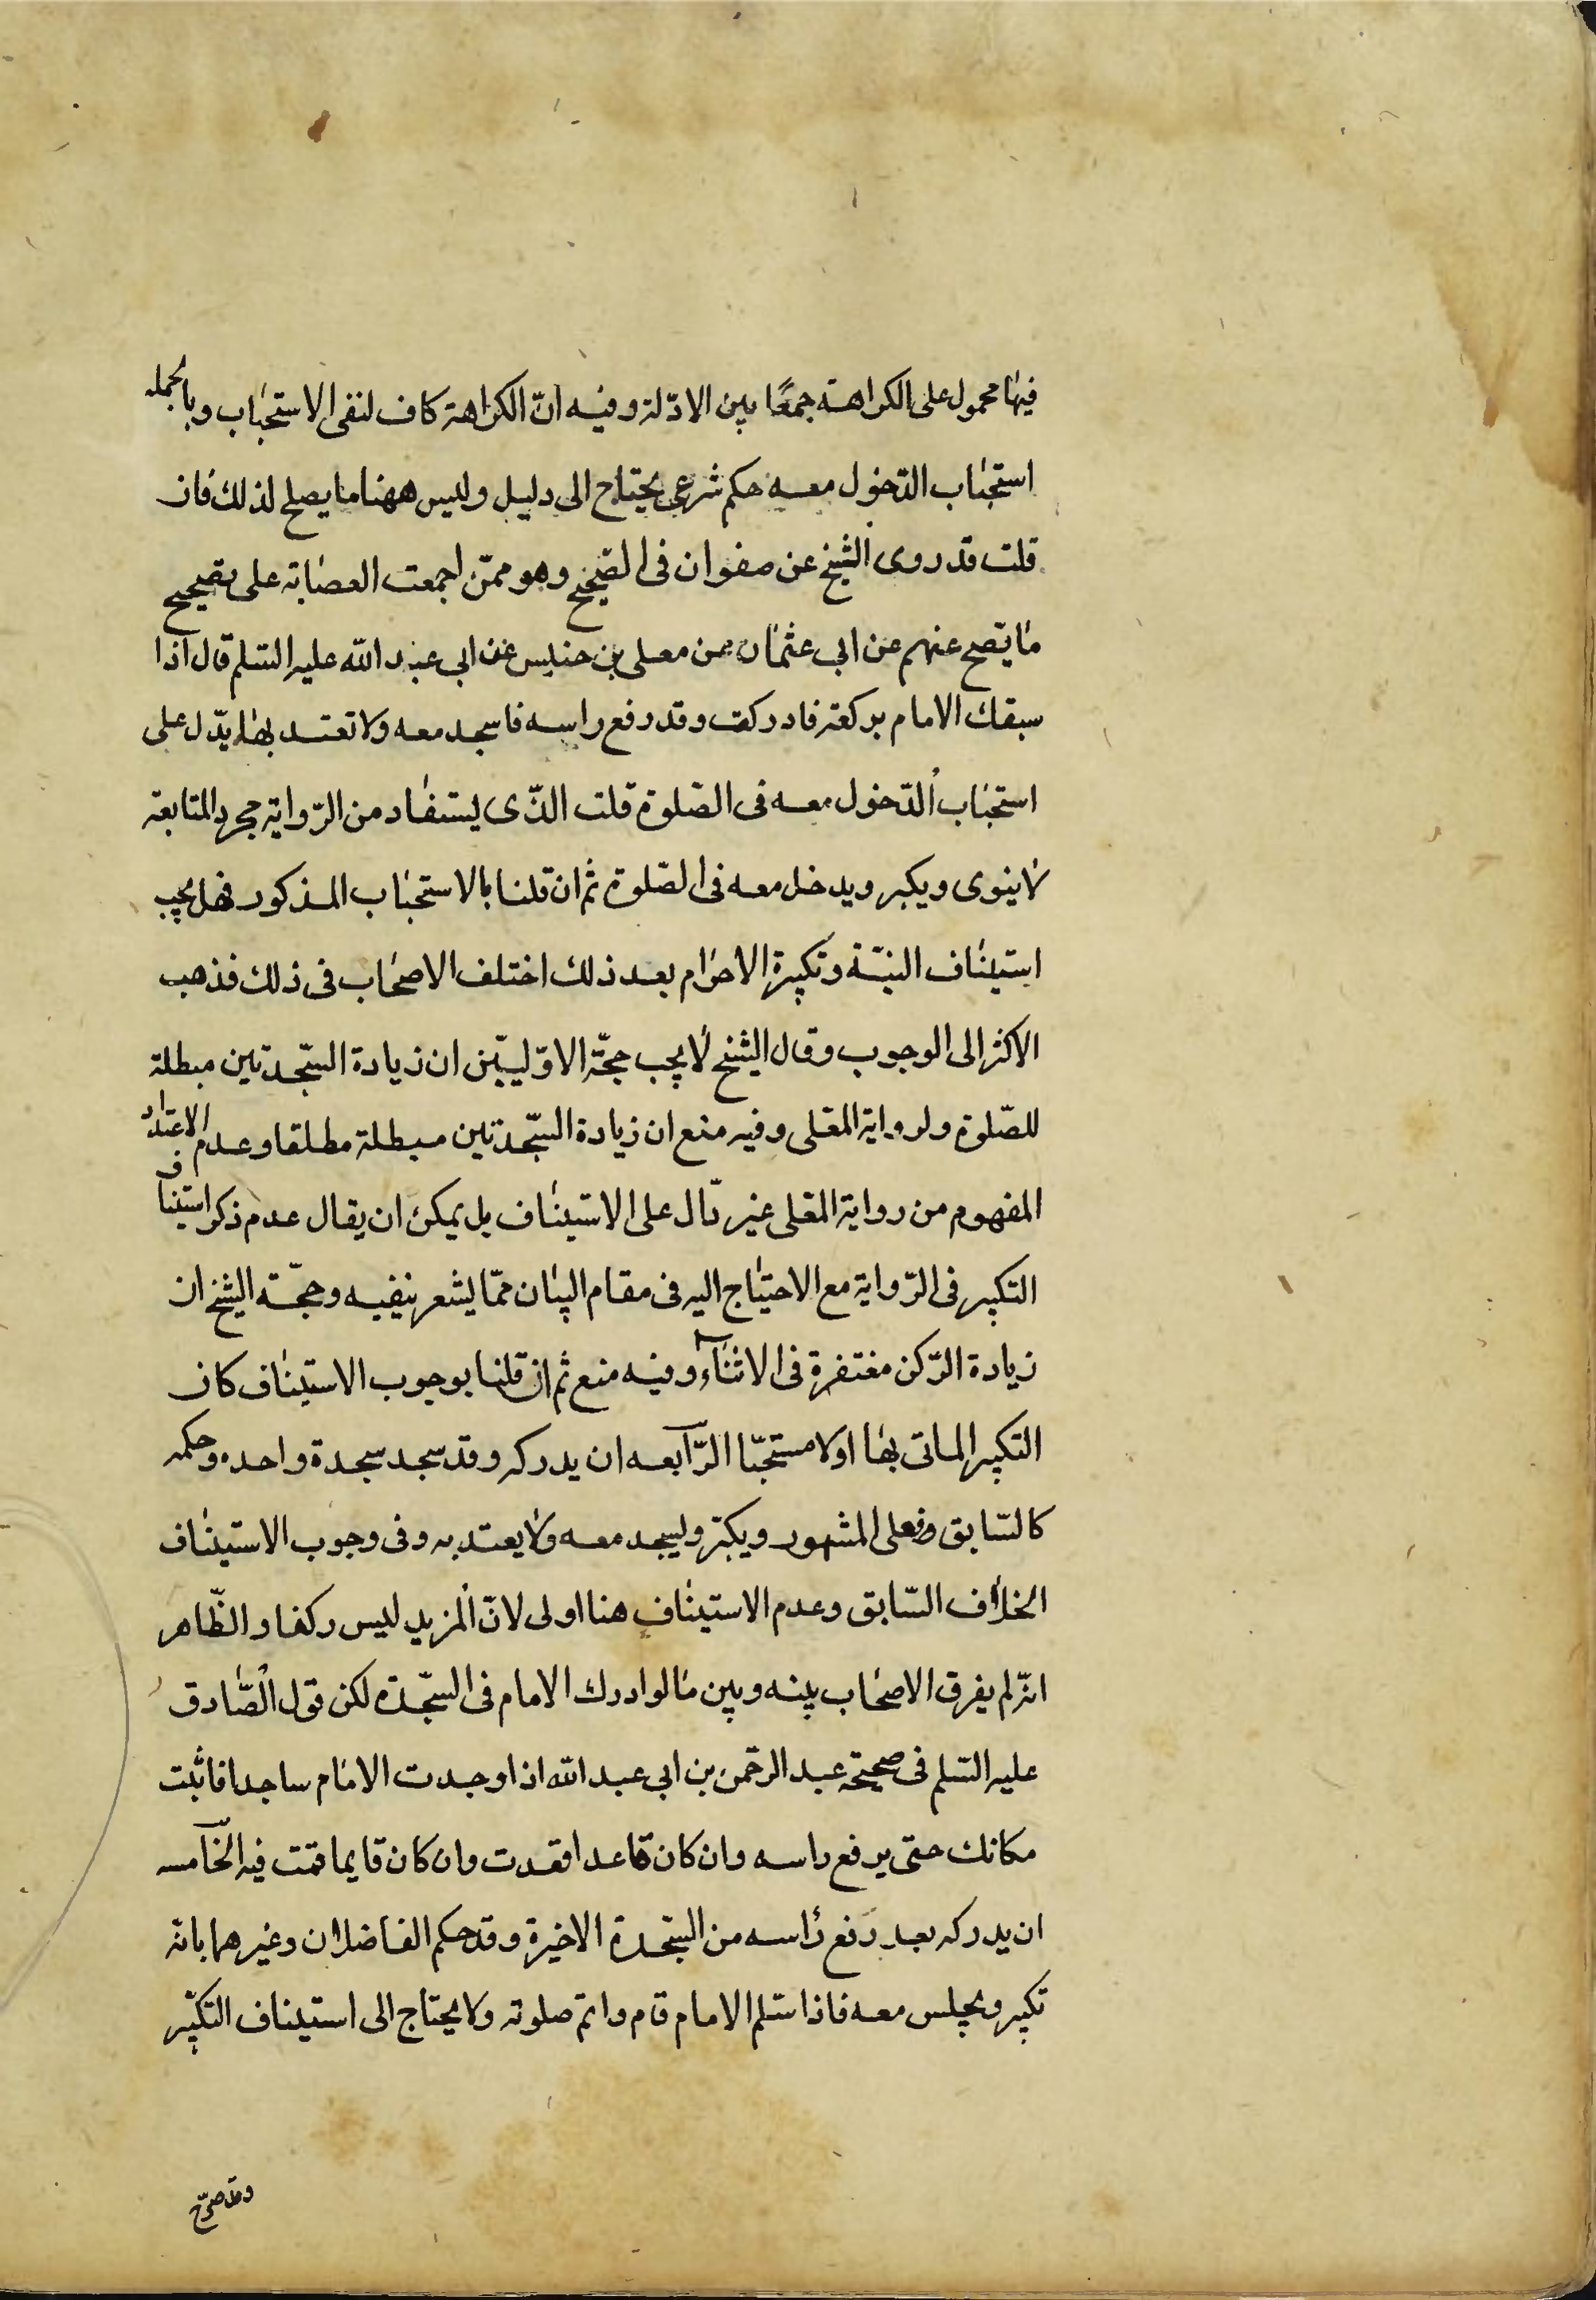 فيها محمول على الكراهة جمعًا بين الادّلة وفيه انّ الكراهة كاف لنفى الاستحباب وبالجمله
استحباب الدّخول معه حكم شرعى يحتاج الى دليل وليس ههنا ما يصلح لذلك فان
قلت قد روى الشيخ عن صفوان فى الصّحيح وهو ممّن اجمعت العصابة على تصحيح
ما تصح عنهم عن ابى عثمان عن معلى بن خنيس عن ابى عبد الله عليه السّلم قال اذا
سبقك الامام بركعة فادركت وقد رفع راسه فاسجد معه ولا تعتد بها يدّل على
استحباب الدّخول معه فى الصّلوة قلت الذّى يستفاد من الرّواية مجرد المتابعة
لا ينوى ويكبر ويدخل معه فى الصّلوة ثم ان قلنا بالاستحباب المذكور فهل يجب
استيناف النيّة وتكبيرة الاحرام بعد ذلك اختلف الاصحاب فى ذلك فذهب
الاكثر الى الوجوب وقال الشيخ لا يجب حجّة الاوّليّين ان زيادة السّجدتين مبطلة
للصّلوة ولرواية المعلى وفيه منع ان زيادة السّجدتين مبطلة مطلقا وعدم الاعتداد
المفهوم من رواية المعلى غير دّال على الاستيناف بل يمكن ان يقال عدم ذكر استيناف
التكبير فى الرّواية مع الاحتياج اليه فى مقام البيان ممّا يشعر بنفيه وحجّة الشيخ ان
زيادة الرّكن مغتفرة فى الاثناء وفيه منع ثم ان قلنا بوجوب الاستيناف كان
التكبير الماتى بها اولا مستحبّا الرّابعه ان يدركه وقد سجد سجدة واحده وحكمه
كالسّابق فعلى المشهور ويكبّر وليسجد معه ولا يعتد به وفى وجوب الاستيناف
الخلاف السّابق وعدم الاستيناف هنا اولى لانّ المزيد ليس ركنا والظّاهر
انّه لم يفرق الاصحاب بينه وبين ما لو ادرك الامام فى السّجدة لكن قول الصّادق
عليه السّلم فى صحيحة عبد الرحمن بن ابى عبد الله اذا وجدت الامام ساجدا فاثبت
مكانك حتى يرفع راسه وان كان قاعدا قعدت وان كان قايما قمت فيه الخّامسه
ان يدركه بعد رفع رأسه من السّجدة الاخيرة وقد حكم الفاضلان وغيرهما بانه
تكبر ويجلس معه فاذا سّلم الامام قام واتم صلوته ولا يحتاج الى استيناف التكبير
وقد صرّح